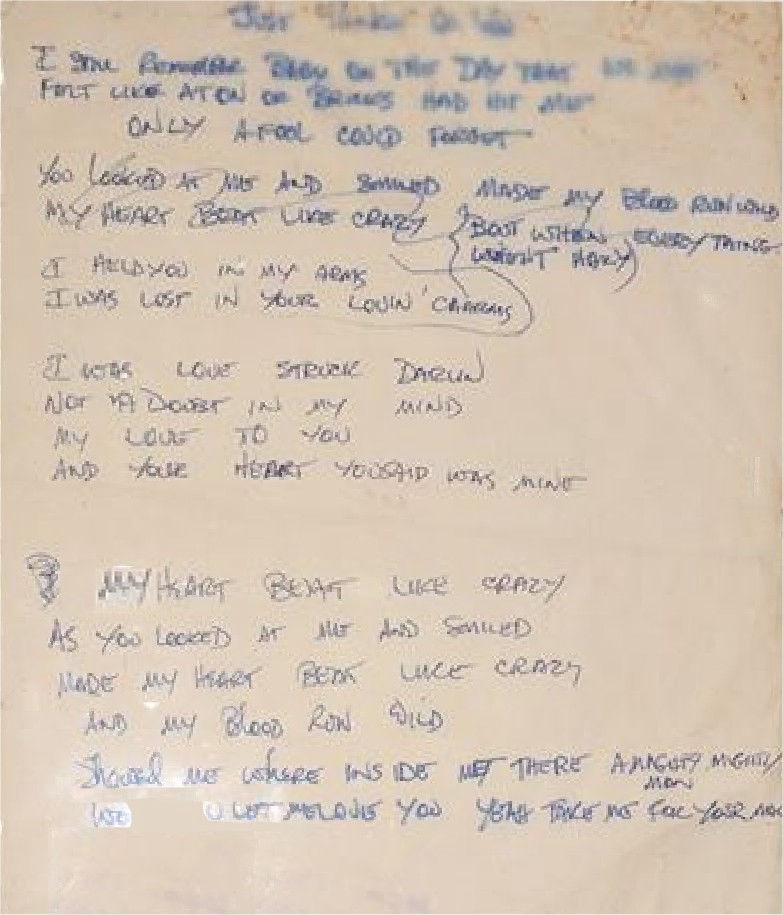 Just Thinkin' Of You
I STILL REMEMBER BABY ON THE DAY THAT WE MET
FELT LIKE A TON OF BRICKS HAD HIT ME
ONLY A FOOL COULD FORGET
YOU LOOKED AT ME AND SMILED MADE MY BLOOD RUN WILD
MY HEART BEAT LIKE CRAZY
BOUT WHEN EVERYTHING
WENT HAZY
I HELD YOU IN MY ARMS
I WAS LOST IN YOUR LOVIN' CHARMS
I WAS LOVE STRUCK DARLIN
NOT A DOUBT IN MY MIND
MY LOVE TO YOU
AND YOUR HEART YOU SAID WAS MINE
MY HEART BEAT LIKE CRAZY
AS YOU LOOKED AT ME AND SMILED
MADE MY HEART BEAT LIKE CRAZY
AND MY BLOOD RUN WILD
SHOWED ME WHERE INSIDE ME THERE A MIGHTY MIGHTY
MAN
U LET ME LOVE YOU YEAH TAKE ME FOR YOUR MAN